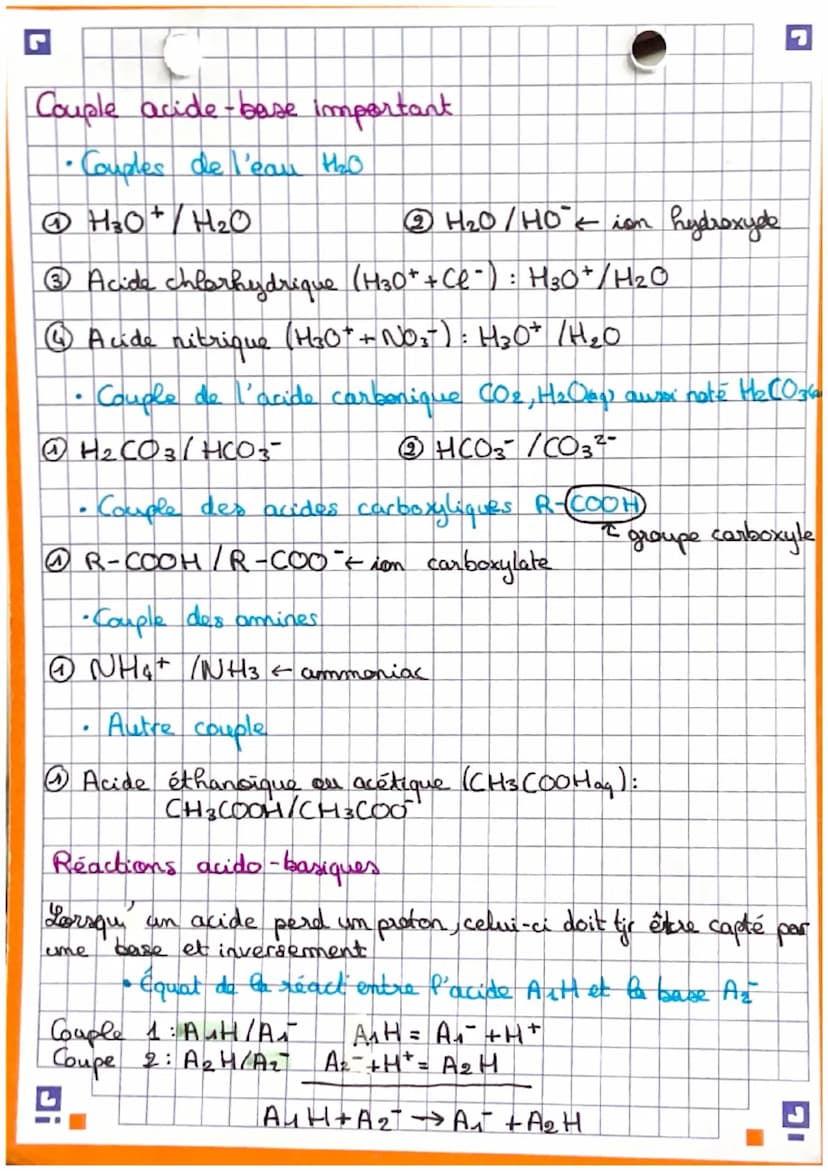 Couple acide-base important
• Couples de l'eau H₂O
① H₃O⁺ / H₂O ② H₂O / HO⁻ ← ion hydroxyde
③ Acide chlorhydrique (H₃O⁺ + Cl⁻) : H₃O⁺/H₂O
④ Acide nitrique (H₃O⁺ + NO₃⁻) : H₃O⁺ /H₂O
• Couple de l'acide carbonique CO₂, H₂O(aq) aussi noté H₂CO₃(a
① H₂CO₃ / HCO₃⁻ ② HCO₃⁻ / CO₃²⁻
• Couple des acides carboxyliques R-COOH
↑ groupe carboxyle
① R-COOH / R-COO⁻ ← ion carboxylate
• Couple des amines
① NH₄⁺ /NH₃ ← ammoniac
• Autre couple
① Acide éthanoïque ou acétique (CH₃COOHaq) :
CH₃COOH/CH₃COO⁻
Réactions acido-basiques
Lorsqu'un acide perd un proton, celui-ci doit tjr être capté par
une base et inversement
• Équat° de la réact° entre l'acide A₁H et la base A₂⁻
Couple 1 : A₁H/A₁⁻ A₁H = A₁⁻ + H⁺
Coupe 2 : A₂H/A₂⁻ A₂⁻ + H⁺ = A₂H
A₁H + A₂⁻ → A₁⁻ + A₂H